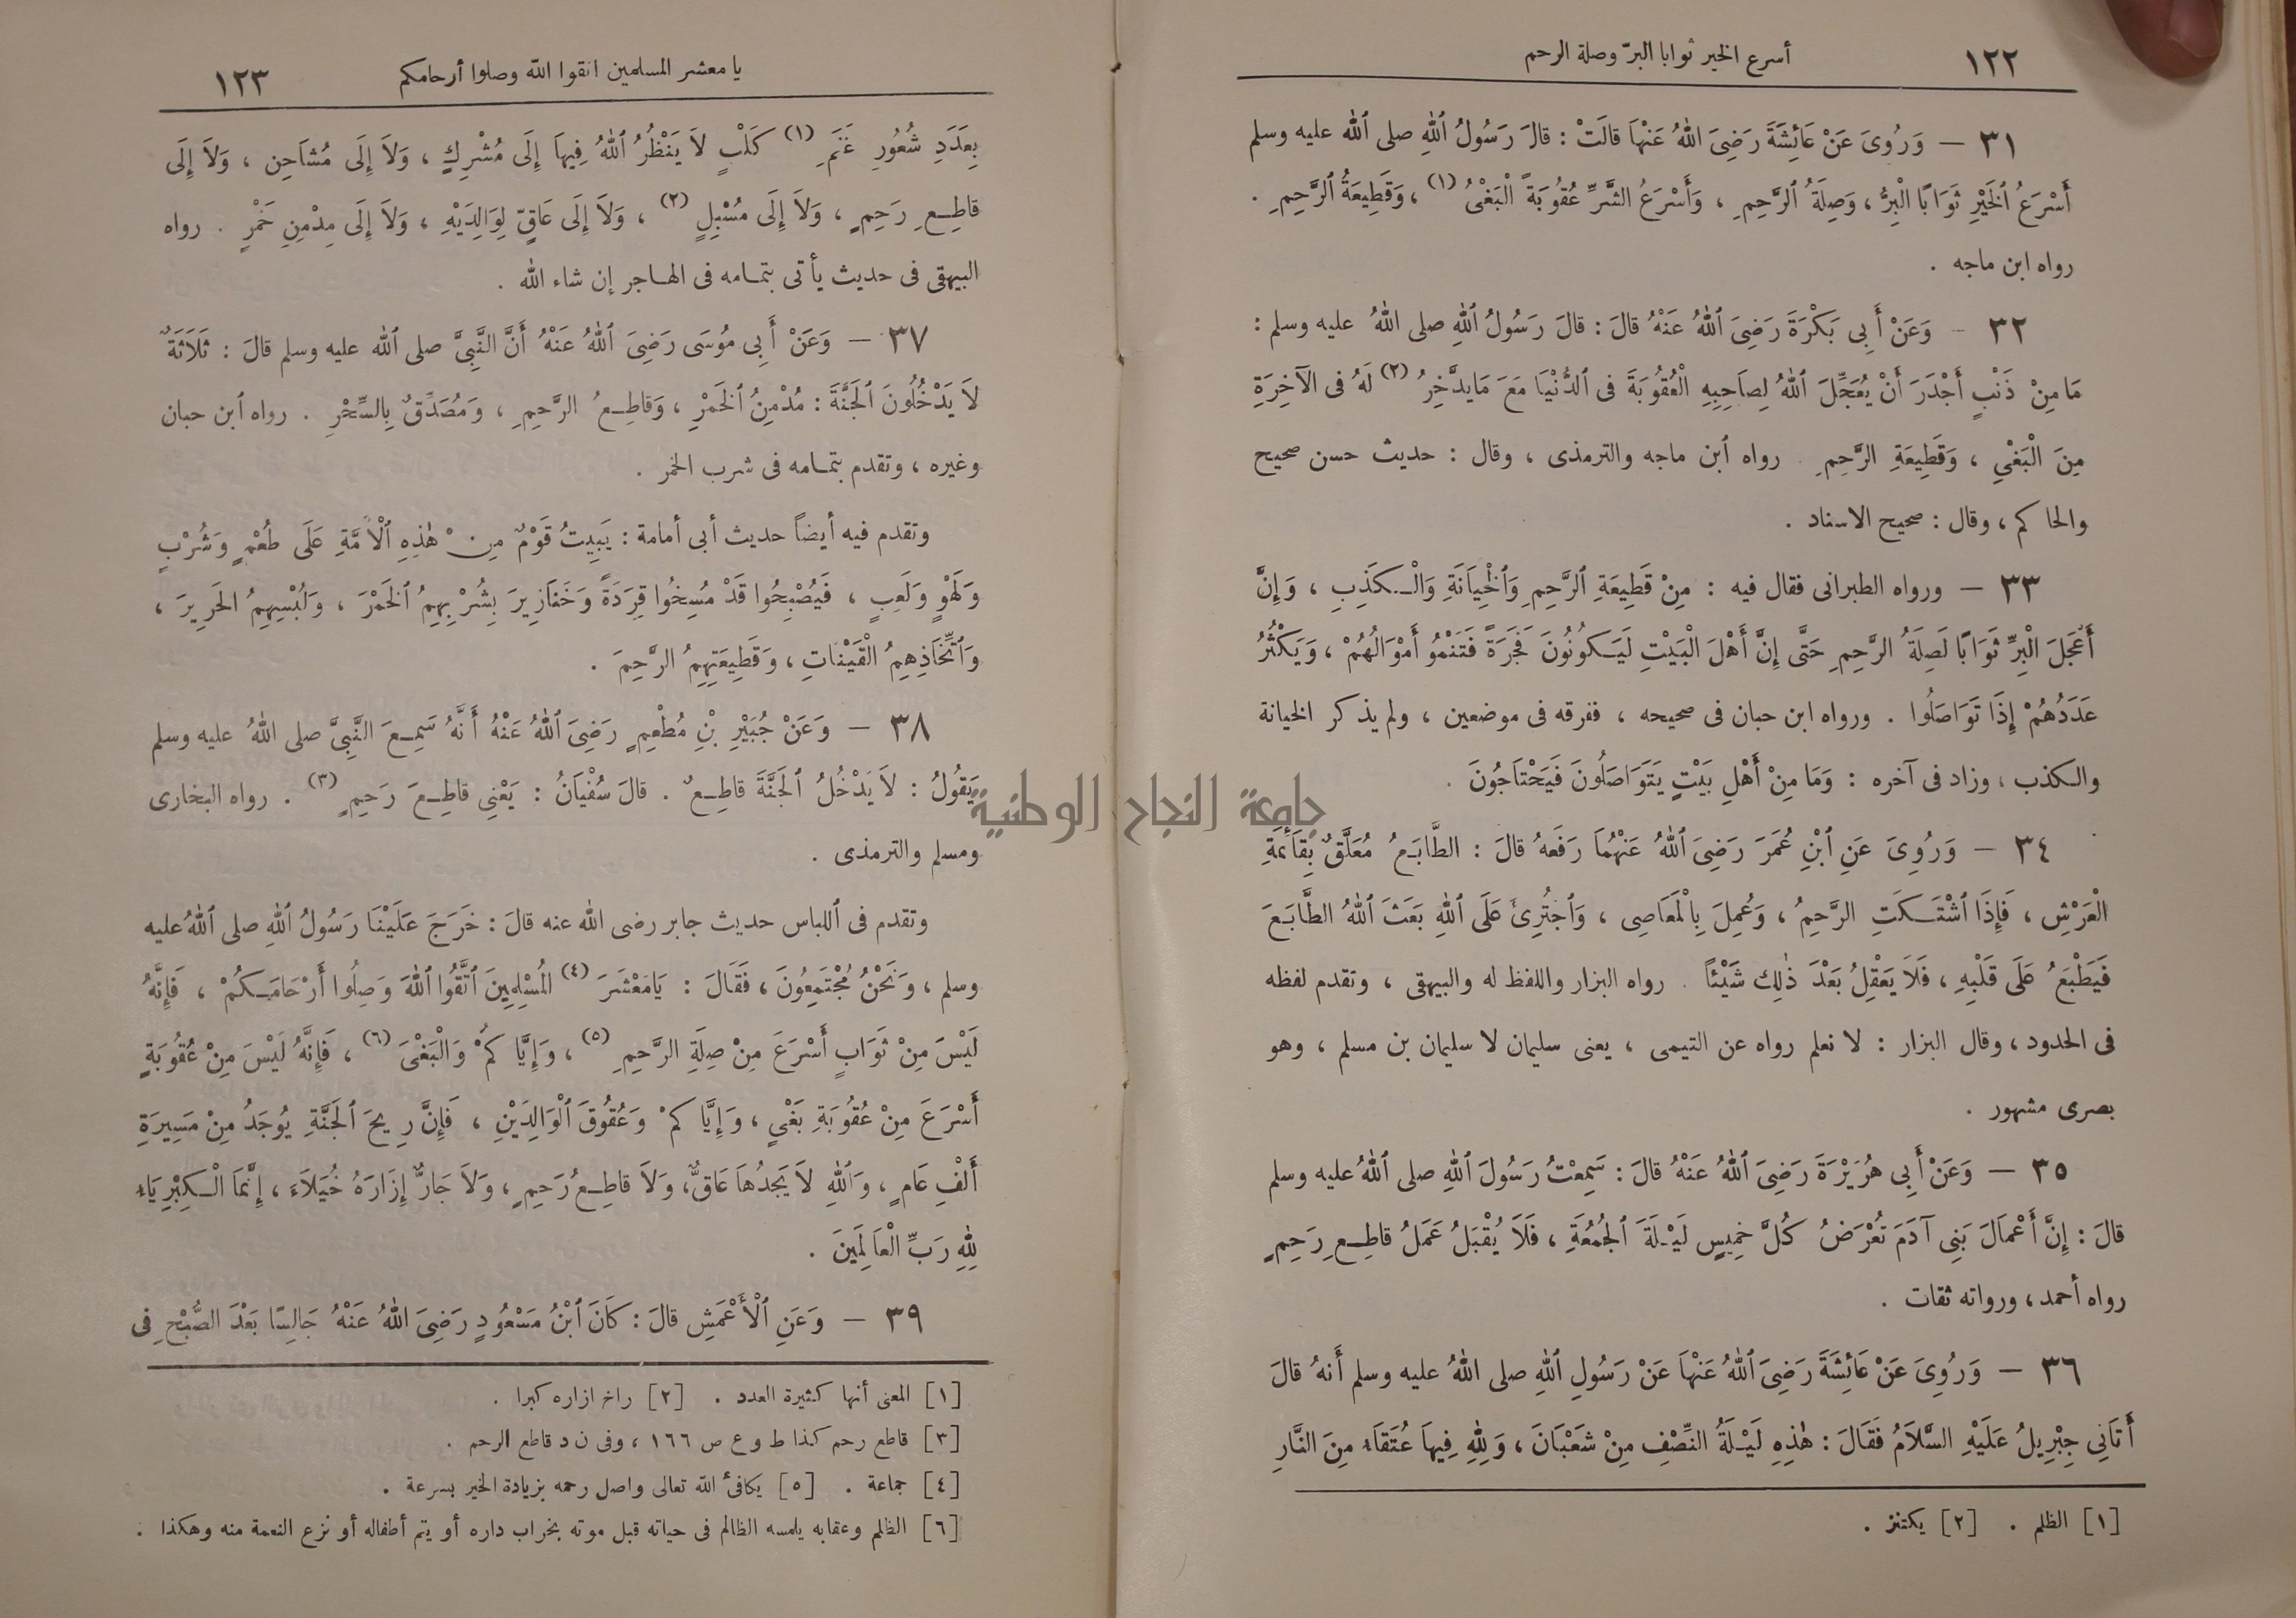 ١٢٢ أسرع الخير ثوابا البرّ وصلة الرحم
٣١ — وَرُوِىَ عَنْ عَائِشَةَ رَضِىَ ٱللهُ عَنْهَا قالَتْ : قالَ رَسُولُ ٱللهِ صلى ٱلله عليه وسلم
أَسْرَعُ ٱلْخَيْرِ ثَوَابًا الْبِرُّ ، وَصِلَةُ ٱلرَّحِمِ ، وَأَسْرَعُ الشَّرِّ عُقُوبَةً الْبَغْىُ (١) ، وَقَطِيعَةُ ٱلرَّحِمِ .
رواه ابن ماجه .
٣٢ — وَعَنْ أَبِى بَكْرَةَ رَضِىَ ٱللهُ عَنْهُ قالَ : قالَ رَسُولُ ٱللهِ صلى اللهُ عليه وسلم :
مَا مِنْ ذَنْبٍ أَجْدَرَ أَنْ يُعَجِّلَ ٱللهُ لِصَاحِبِهِ الْعُقُوبَةَ فى ٱلدُّنْيَا مَعَ مَا يدَّخِرُ (٢) لَهُ فى الآخِرَةِ
مِنَ الْبَغْىِ ، وَقَطِيعَةِ الرَّحِمِ . رواه ٱبن ماجه والترمذى ، وقال : حديث حسن صحيح
والحاكم ، وقال : صحيح الاسناد .
٣٣ — ورواه الطبرانى فقال فيه : مِنْ قَطِيعَةِ ٱلرَّحِمِ وَٱلْخِيَانَةِ وَالْـكَذِبِ ، وَإِنَّ
أَعْجَلَ الْبِرِّ ثَوَابًا لَصِلَةُ الرَّحِمِ حَتَّى إِنَّ أَهْلَ الْبَيْتِ لَيَـكُونُونَ فَجَرَةً فَتَنْمُو أَمْوَالُهُمْ ، وَيَكْثُرُ
عَدَدُهُمْ إِذَا تَوَاصَلُوا . ورواه ابن حبان فى صحيحه ، ففرقه فى موضعين ، ولم يذكر الخيانة
والكذب ، وزاد فى آخره : وَمَا مِنْ أَهْلِ بَيْتٍ يَتَوَاصَلُونَ فَيَحْتَاجُونَ .
٣٤ — وَرُوِىَ عَنِ ٱبْنِ عُمَرَ رَضِىَ ٱللهُ عَنْهُمَا رَفَعَهُ قالَ : الطَّابَعُ مُعَلَّقٌ بِقَائِمَةِ
الْعَرْشِ ، فَإِذَا ٱشْتَـكَتِ الرَّحِمُ ، وَعُمِلَ بِالْمَعَاصِى ، وَٱجْتُرِئَ عَلَى ٱللهِ بَعَثَ ٱللهُ الطَّابَعَ
فَيَطْبَعُ عَلَى قَلْبِهِ ، فَلاَ يَعْقِلُ بَعْدَ ذٰلِكَ شَيْئًا . رواه البزار واللفظ له والبيهقى ، وتقدم لفظه
فى الحدود ، وقال البزار : لا نعلم رواه عن التيمى ، يعنى سليمان لا سليمان بن مسلم ، وهو
بصرى مشهور .
٣٥ — وَعَنْ أَبِى هُرَيْرَةَ رَضِىَ ٱللهُ عَنْهُ قالَ : سَمِعْتُ رَسُولَ ٱللهِ صلى ٱللهُ عليه وسلم
قالَ : إِنَّ أَعْمَالَ بَنِى آدَمَ تُعْرَضُ كُلَّ خَمِيسٍ لَيْـلَةَ ٱلْجُمُعَةِ ، فَلاَ يُقْبَلُ عَمَلُ قاطِـعِ رَحِمٍ
رواه أحمد ، ورواته ثقات .
٣٦ — وَرُوِىَ عَنْ عَائِشَةَ رَضِىَ ٱللهُ عَنْهَا عَنْ رَسُولِ ٱللهِ صلى اللهُ عليه وسلم أَنهُ قالَ
أَتَانِى جِبْرِيلُ عَلَيْهِ السَّلاَمُ فَقَالَ : هٰذِهِ لَيْـلَةُ النِّصْفِ مِنْ شَعْبَانَ ، وَلِلهِ فِيهَا عُتَقَاءُ مِنَ النَّارِ
[١] الظلم . [٢] يكتنز .
يا معشر المسلمين اتقوا الله وصلوا أرحامكم ١٢٣
بِعَدَدِ شُعُورِ غَنَمِ (١) كَلْبٍ لاَ يَنْظُرُ ٱللهُ فِيهَا إِلَى مُشْرِكٍ ، وَلاَ إِلَى مُشَاحِنٍ ، وَلاَ إِلَى
قاطِـعِ رَحِمٍ ، وَلاَ إِلَى مُسْبِلٍ (٢) ، وَلاَ إِلَى عَاقٍّ لِوَالِدَيْهِ ، وَلاَ إِلَى مِدْمِنِ خَمْرٍ . رواه
البيهقى فى حديث يأتى بتمـامه فى الهـاجر إن شاء الله .
٣٧ — وَعَنْ أَبِى مُوسَى رَضِىَ ٱللهُ عَنْهُ أَنَّ النَّبِىَّ صلى ٱلله عليه وسلم قالَ : ثَلاَثَةٌ
لاَ يَدْخُلُونَ ٱلْجَنَّةَ : مُدْمِنُ ٱلْخَمْرِ ، وَقاطِـعُ الرَّحِمِ ، وَمُصَدِّقٌ بِالسِّحْرِ . رواه ٱبن حبان
وغيره ، وتقدم بتمـامه فى شرب الخمر .
وتقدم فيه أيضاً حديث أبى أمامة : يَبِيتُ قَوْمٌ مِنْ هٰذِهِ ٱلْأُمَّةِ عَلَى طُعْمٍ وَشُرْبٍ
وَلَهْوٍ وَلَعِبٍ ، فَيُصْبِحُوا قَدْ مُسِخُوا قِرَدَةً وَخَنَازِيرَ بِشُرْبِهِمُ ٱلْخَمْرَ ، وَلُبْسِهِمُ الحَرِيرَ ،
وَٱتِّخَاذِهِمُ الْقَيْنَاتِ ، وَقَطِيعَتِهِمُ الرَّحِمَ .
٣٨ — وَعَنْ جُبَيْرِ بْنِ مُطْعِمٍ رَضِىَ ٱللهُ عَنْهُ أَنَّهُ سَمِـعَ النَّبِىَّ صلى ٱللهُ عليه وسلم
يَقُولُ : لاَ يَدْخُلُ ٱلْجَنَّةَ قاطِـعٌ . قالَ سُفْيَانُ : يَعْنِى قاطِـعَ رَحِمٍ (٣) . رواه البخارى
جامعة النجاح الوطنية
ومسلم والترمذى .
وتقدم فى ٱللباس حديث جابر رضى الله عنه قالَ : خَرَجَ عَلَيْنَا رَسُولُ ٱللهِ صلى ٱللهُ عليه
وسلم ، وَنَحْنُ مُجْتَمِعُونَ ، فَقَالَ : يَا مَعْشَرَ (٤) الْمُسْلِمِينَ ٱتَّقُوا ٱللهَ وَصِلُوا أَرْحَامَـكُمْ ، فَإِنَّهُ
لَيْسَ مِنْ ثَوَابٍ أَسْرَعَ مِنْ صِلَةِ الرَّحِمِ (٥) ، وَإِيَّاكُمْ وَالْبَغْىَ (٦) ، فَإِنَّهُ لَيْسَ مِنْ عُقُوبَةٍ
أَسْرَعَ مِنْ عُقُوبَةِ بَغْىٍ ، وَإِيَّاكمْ وَعُقُوقَ ٱلْوَالِدَيْنِ ، فَإِنَّ رِيحَ ٱلْجَنَّةِ يُوجَدُ مِنْ مَسِيرَةِ
أَلْفِ عَامٍ ، وَٱللهِ لاَ يَجِدُهَا عَاقٌّ ، وَلاَ قاطِـعُ رَحِمٍ ، وَلاَ جَارٌّ إِزَارَهُ خُيَلاَءَ ، إِنَّمَا الْـكِبْرِيَاءُ
لِلهِ رَبِّ الْعَالَمِينَ .
٣٩ — وَعَنِ ٱلْأَعْمَشِ قالَ : كَانَ ٱبْنُ مَسْعُودٍ رَضِىَ ٱللهُ عَنْهُ جَالِسًا بَعْدَ الصُّبْحِ فى
[١] المعنى أنها كثيرة العدد . [٢] راخ ازاره كبرا .
[٣] قاطع رحم كذا ط و ع ص ١٦٦ ، وفى ن د قاطع الرحم .
[٤] جماعة . [٥] يكافئ الله تعالى واصل رحمه بزيادة الخير بسرعة .
[٦] الظلم وعقابه يلمسه الظالم فى حياته قبل موته بخراب داره أو يتم أطفاله أو نزع النعمة منه وهكذا .